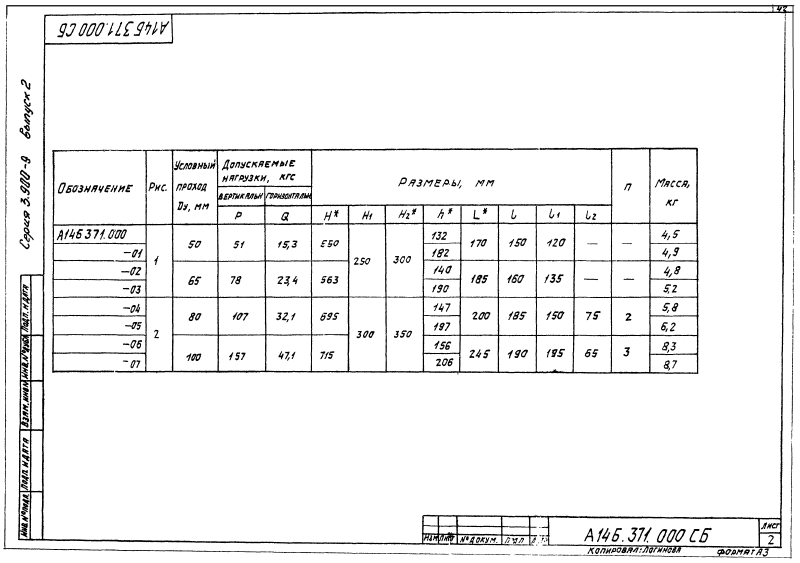 42
А14Б.371.000 СБ
Серия 3.900-9 Выпуск 2
Обозначение Рис. Условный проход Dу, мм Допускаемые нагрузки, кгс Размеры, мм п Масса, кг
вертикальн горизонтальн
P Q H* H1 H2* h* L* l l1 l2
А14Б.371.000 1 50 51 15,3 550 250 300 132 170 150 120 — — 4,5
-01 182 4,9
-02 65 78 23,4 563 140 185 160 135 — — 4,8
-03 190 5,2
-04 2 80 107 32,1 695 300 350 147 200 185 150 75 2 5,8
-05 197 6,2
-06 100 157 47,1 715 156 245 190 195 65 3 8,3
-07 206 8,7
Инв.№подл. Подп. и дата Взам.инв.№ Инв.№дубл. Подп. и дата
Изм Лист № докум. Подп. Дата
А14Б.371.000 СБ
Лист
2
Копировал: Логинова Формат А3